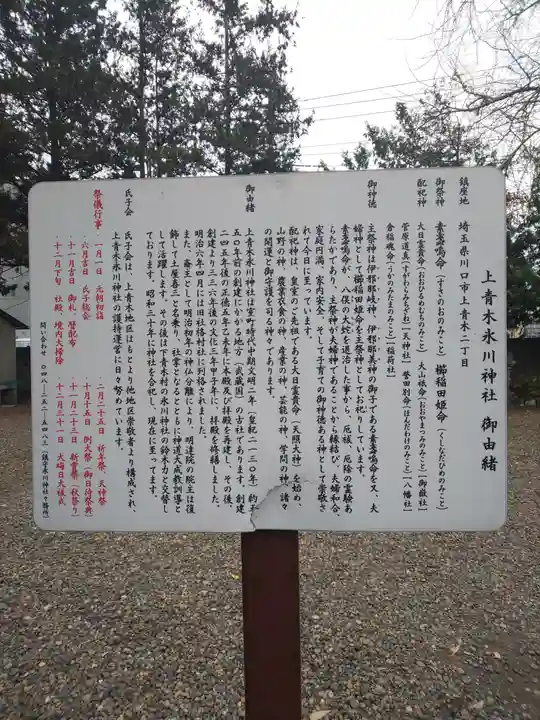 上青木氷川神社 御由緒
鎮座地 埼玉県川口市上青木二丁目
御祭神 素盞嗚命(すさのおのみこと) 櫛稲田姫命(くしなだひめのみこと)
配祀神 大日孁貴命(おおひるめむちのみこと) 大山祇命(おおやまつみのみこと)[御嶽社]
菅原道真(すがわらみちざね)[天神社] 誉田別命(ほんだわけのみこと)[八幡社]
倉稲魂命(うかのみたまのみこと)[稲荷社]
御神徳 主祭神は伊邪那岐神、伊邪那美神の御子である素盞嗚命を又、夫
婦神として櫛稲田姫命を主祭神としてお祀りしています。
素盞嗚命が、八俣の大蛇を退治した事から、厄祓、厄除の霊験あ
らたかであり、主祭神が夫婦神であることから縁結び、夫婦和合、
家庭円満、家内安全、そして子育ての御神徳ある神として崇敬さ
れて今日に至っています。
配祀神は、皇室のご先祖である大日孁貴命(天照大神)を始め、
山野の神、農業衣食の神、産業の神、芸能の神、学問の神、諸々
の開運と御守護を司る神々であります。
御由緒 上青木氷川神社は室町時代中期文明二年(皇紀二一三〇年)約五
五〇年前の創建と伝わる当地方(武蔵国)の古社であります。創建
二四五年後の徳五年乙未年に本殿及び拝殿を再建し、その後、
創建より三三六年後の文化三年甲子年に、拝殿を修繕しました。
明治六年四月には旧社格村社に列格されました。
また、斎主として明治初年の神仏分離により、明達院の院主は復
飾して土屋喜三と名乗り、社掌となるとともに神道大成教訓導と
して活躍します。その後は下青木村の氷川神社の鈴木力と交替し
ております。昭和三十年に神社を合祀し、現在に至ってます。
氏子会 氏子会は、上青木地区はもとより他地区崇敬者より構成され、
上青木氷川神社の護持運営に日々努めています。
祭儀行事 一月一日 元朝初詣 二月二十五日 祈年祭、天神祭
六月吉日 氏子総会 十月十五日 例大祭(御日待祭典)
十一月吉日 御札、暦配布 十一月二十三日 新嘗祭(秋祭り)
十二月下旬 社殿、境内大掃除 十二月三十一日 大晦日大祓式
問い合わせ 〇四八-二五二-五四八三(鎮守氷川神社々務所)